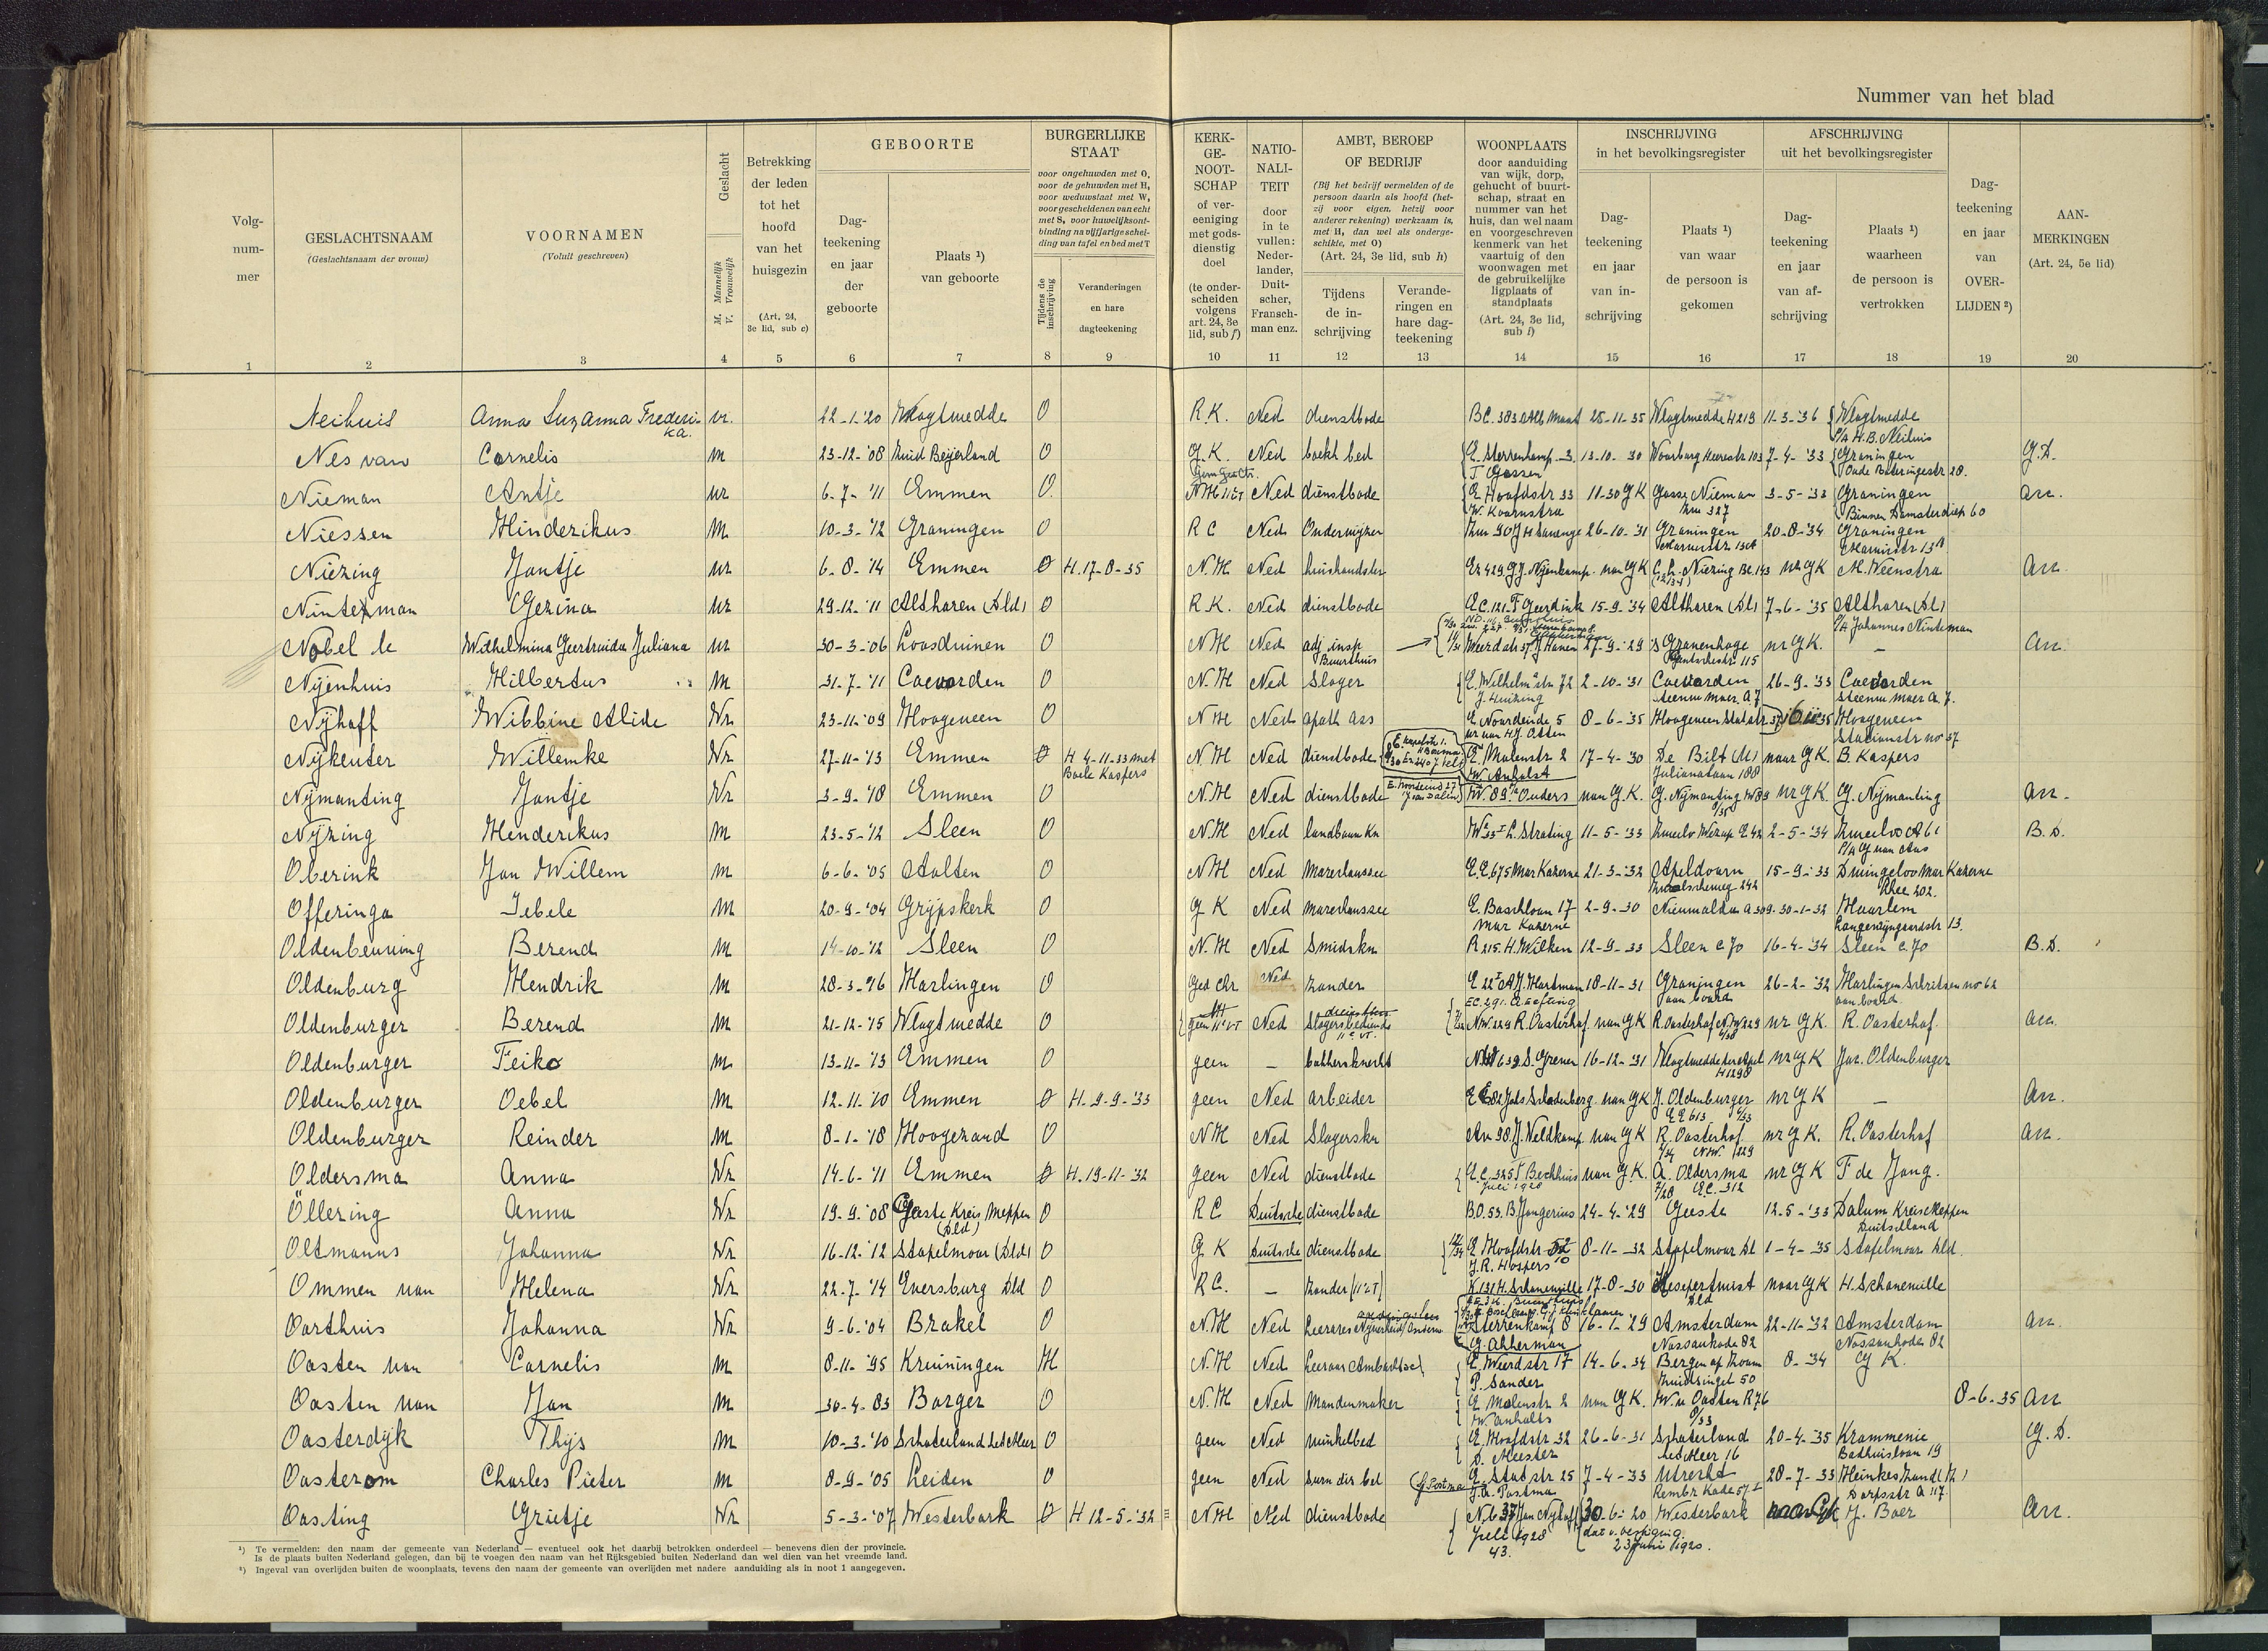 Nummer van het blad
Volg-
num-
mer
GESLACHTSNAAM
(Geslachtsnaam der vrouw)
VOORNAMEN
(Voluit geschreven)
Geslacht
M. Mannelijk
V. Vrouwelijk
Betrekking
der leden
tot het
hoofd
van het
huisgezin
(Art. 24,
3e lid, sub c)
GEBOORTE
Dag-
teekening
en jaar
der
geboorte
Plaats ¹)
van geboorte
BURGERLIJKE
STAAT
voor ongehuwden met O,
voor de gehuwden met H,
voor weduwstaat met W,
voor gescheidenen van echt
met S, voor huwelijksont-
binding na vijfjarige schei-
ding van tafel en bed met T
Tijdens de
inschrijving
Veranderingen
en hare
dagteekening
KERK-
GE-
NOOT-
SCHAP
of ver-
eeniging
met gods-
dienstig
doel
(te onder-
scheiden
volgens
art. 24, 3e
lid, sub f)
NATIO-
NALI-
TEIT
door
in te
vullen:
Neder-
lander,
Duit-
scher,
Fransch-
man enz.
AMBT, BEROEP
OF BEDRIJF
(Bij het bedrijf vermelden of de
persoon daarin als hoofd (het-
zij voor eigen, hetzij voor
anderer rekening) werkzaam is,
met H, dan wel als onderge-
schikte, met O)
(Art. 24, 3e lid, sub h)
Tijdens
de in-
schrijving
Verande-
ringen en
hare dag-
teekening
WOONPLAATS
door aanduiding
van wijk, dorp,
gehucht of buurt-
schap, straat en
nummer van het
huis, dan wel naam
en voorgeschreven
kenmerk van het
vaartuig of den
woonwagen met
de gebruikelijke
ligplaats of
standplaats
(Art. 24, 3e lid,
sub i)
INSCHRIJVING
in het bevolkingsregister
Dag-
teekening
en jaar
van in-
schrijving
Plaats ¹)
van waar
de persoon is
gekomen
AFSCHRIJVING
uit het bevolkingsregister
Dag-
teekening
en jaar
van af-
schrijving
Plaats ¹)
waarheen
de persoon is
vertrokken
Dag-
teekening
en jaar
van
OVER-
LIJDEN ²)
AAN-
MERKINGEN
(Art. 24, 5e lid)
1 2 3 4 5 6 7 8 9 10 11 12 13 14 15 16 17 18 19 20
Neihuis Anna Suzanna Frederi- vr. 22-1-'20 Vlagtwedde O R.K. Ned dienstbode 25-11-35 Vlagtwedde H219 11-3-'36 Vlagtwedde
ka. P/A H.B. Neihuis
Nes van Cornelis M 23-12-'08 Zuid Beijerland O G.K. Ned boekh bed E. Sterrenkamp 3 13-10-30 Voorburg Heerestr 103 7-4-'33 Groningen G.D.
Oude Boteringestr 28.
Nieman Antje vr 6-7-'11 Emmen O. Ned dienstbode E Hoofdstr 33 11-30 GK Gosse Nieman 3-5-'33 Groningen an.
W. Koornstra 327 Binnen Damsterdiep 60
Niessen Hinderikus M 10-3-'12 Groningen O R C Ned Onderwijzer 26-10-31 Groningen 20-8-'34 Groningen
Niezing Jantje vr 6-8-'14 Emmen O H. 17-8-35 N.H Ned huishoudster van GK Niezing nr GK M. Veenstra an.
Ninteman Gezina vr 29-12-'11 Altharen (Dld) O R.K. Ned dienstbode EC. 121. F Geerdink 15-9-'34 Altharen (Dl) 7-6-'35 Altharen (Dl)
P/A Johannes Ninteman
Nobel le Wilhelmina Geertruida Juliana vr 30-3-'06 Loosduinen O NH Ned adj insp 27-9-'29 's Gravenhage nr GK. – an.
Nijenhuis Hilbertus M 31-7-'11 Coevorden O N.H Ned Slager E. Wilhelm.str 72 2-10-'31 Coevorden 26-9-'33 Coevorden
J. Huizing Steenwmoer A 7 Steenwmoer A. 7.
Nijhoff Wibbine Alide Vr 23-11-'09 Hoogeveen O NH Ned apoth ass E Noordeinde 5 8-6-'35 Hoogeveen Hoogeveen
Stationstr no 37
Nijkeuter Willemke Vr 27-11-'13 Emmen O H 4-11-33 met N.H Ned dienstbode E. Molenstr 2 17-4-30 De Bilt (U) naar GK. B. Kaspers
Boele Kaspers W. Anholst Julianalaan 188
Nijmanting Jantje Vr 3-9-'18 Emmen O N.H Ned dienstbode Ouders van GK. G. Nijmanting nr GK. G. Nijmanting an.
Nijzing Henderikus M 23-5-'12 Sleen O N.H Ned landbouw kn L. Strating 11-5-'33 2-5-'34 B.D.
Oberink Jan Willem M 6-6-'05 Aalten O NH Ned Marechaussee E.E. 675 Mar Kazerne 21-3-'32 Apeldoorn 15-9-'33 Dwingeloo Mar Kazerne
242 Rhee 202.
Offeringa Iebele M 20-9-'04 Grijpskerk O GK Ned marechaussee E. Boschlaan 17 2-9-30 30-1-32 Haarlem
Mar Kazerne 13.
Oldenbeuving Berend M 14-10-'12 Sleen O N.H Ned Smidskn R 215. H. Wilken 12-9-33 Sleen C 70 16-4-'34 Sleen C. 70 B.D.
Oldenburg Hendrik M 28-3-'16 Harlingen O Ged Chr Ned zonder A.J. Hartman 18-11-31 Groningen 26-2-'32 Harlingen
aan boord aan boord.
Oldenburger Berend M 21-12-'15 Vlagtwedde O Ned Slagersbediende R. Oosterhof van GK R. Oosterhof nr GK. R. Oosterhof an.
Oldenburger Feiko M 13-11-'13 Emmen O geen – bakkersknecht 16-12-'31 nr GK Jac. Oldenburger
Oldenburger Oebel M 12-11-'10 Emmen O H-9-9-'33 geen Ned arbeider van GK J. Oldenburger nr GK – an.
Oldenburger Reinder M 8-1-'18 Hoogezand O NH Ned Slagerskn J. Veldkamp van GK R. Oosterhof nr GK. R. Oosterhof an.
Oldersma Anna Vr 14-6-'11 Emmen O H. 19-11-'32 geen Ned dienstbode E.C. 325 van GK. A. Oldersma nr GK F de Jong.
Juli 1928 EC. 312
Öllering Anna Vr 19-9-'08 Geeste Kreis Meppen O R C Duitsche dienstbode B.O. 53. B Jongerius 24-4-'29 Geeste 12-5-'33 Dalum Kreis Meppen
(Dld) Duitschland
Oltmanns Johanna Vr 16-12-'12 Stapelmoor (Dld) O G K Duitsche dienstbode E Hoofdstr 8-11-32 Stapelmoor Dl 1-4-35 Stapelmoor Dld.
J.R. Hospers
Ommen van Helena Vr 22-7-'14 Eversburg Dld O R C. – zonder H. Schonewille 17-8-30 Hesepertwist naar GK H. Schonewille
Dld
Oorthuis Johanna Vr 9-6-'04 Brakel O N.H Ned Leerares Sterrenkamp 8 16-1-'29 Amsterdam 22-11-'32 Amsterdam an.
G. Akkerman Nassaukade 82 Nassaukade 82
Oosten van Cornelis M 8-11-'95 Kruiningen H N.H Ned Leeraar Ambachtsch E. Weerdstr 17 14-6-34 Bergen op Zoom 8-34 GK.
P. Sander Zuidsingel 50
Oosten van Jan M 30-4-83 Borger O N.H Ned Mandenmaker E Molenstr 2 van GK. W. v Oosten R 76 8-6-35 an
W. Anholts
Oosterdijk Thijs M 10-3-'10 Schoterland O geen Ned winkelbed E. Hoofdstr 32 26-6-31 Schoterland 20-4-35 Krommenie G.D.
D. Meester Badhuislaan 19
Oosterom Charles Pieter M 8-9-'05 Leiden O geen Ned E. Stadstr 25 7-4-33 Utrecht 28-7-33
J.A. Postma Rembr Kade Dorpsstr A 117
Oosting Grietje Vr 5-3-'07 Westerbork O H 12-5-'32 NH Ned dienstbode Jan Nijhoff 30-6-20 Westerbork naar GK J. Boer an.
Juli 1928 dat v. vestiging
43. 23 Juni 1920.
¹) Te vermelden: den naam der gemeente van Nederland — eventueel ook het daarbij betrokken onderdeel — benevens dien der provincie.
Is de plaats buiten Nederland gelegen, dan bij te voegen den naam van het Rijksgebied buiten Nederland dan wel dien van het vreemde land.
²) Ingeval van overlijden buiten de woonplaats, tevens den naam der gemeente van overlijden met nadere aanduiding als in noot 1 aangegeven.